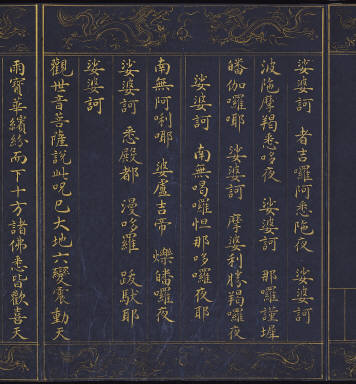 娑婆訶　者吉羅阿悉陁夜　娑婆訶
波陁摩羯悉哆夜　娑婆訶　那囉謹墀
皤伽囉哪　娑婆訶　摩婆利勝羯囉夜
娑婆訶　南無喝囉怛那哆囉夜耶
南無阿唎哪　婆盧吉帝　爍皤囉夜
娑婆訶　悉殿都　漫哆羅　跋馱耶
娑婆訶
觀世音菩薩說此呪已大地六變震動天
雨寶華繽紛而下十方諸佛悉皆歡喜天